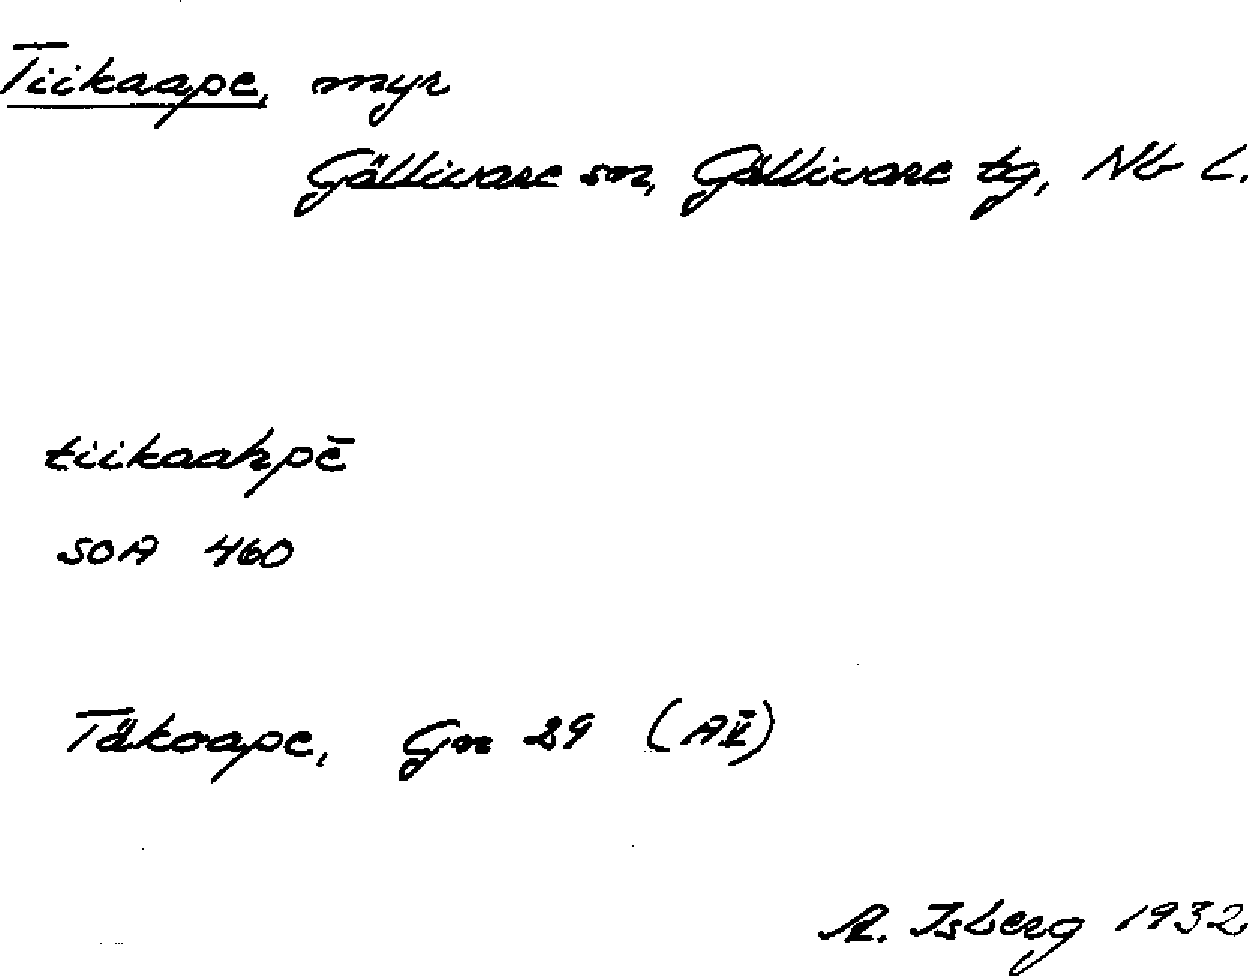 Tiikaape, myr
Gällivare sn, Gällivare tg, Nb L.
tiikaahpē
SOA 460
Täkoape, Gn 29 (AV)
A. Isberg 1932